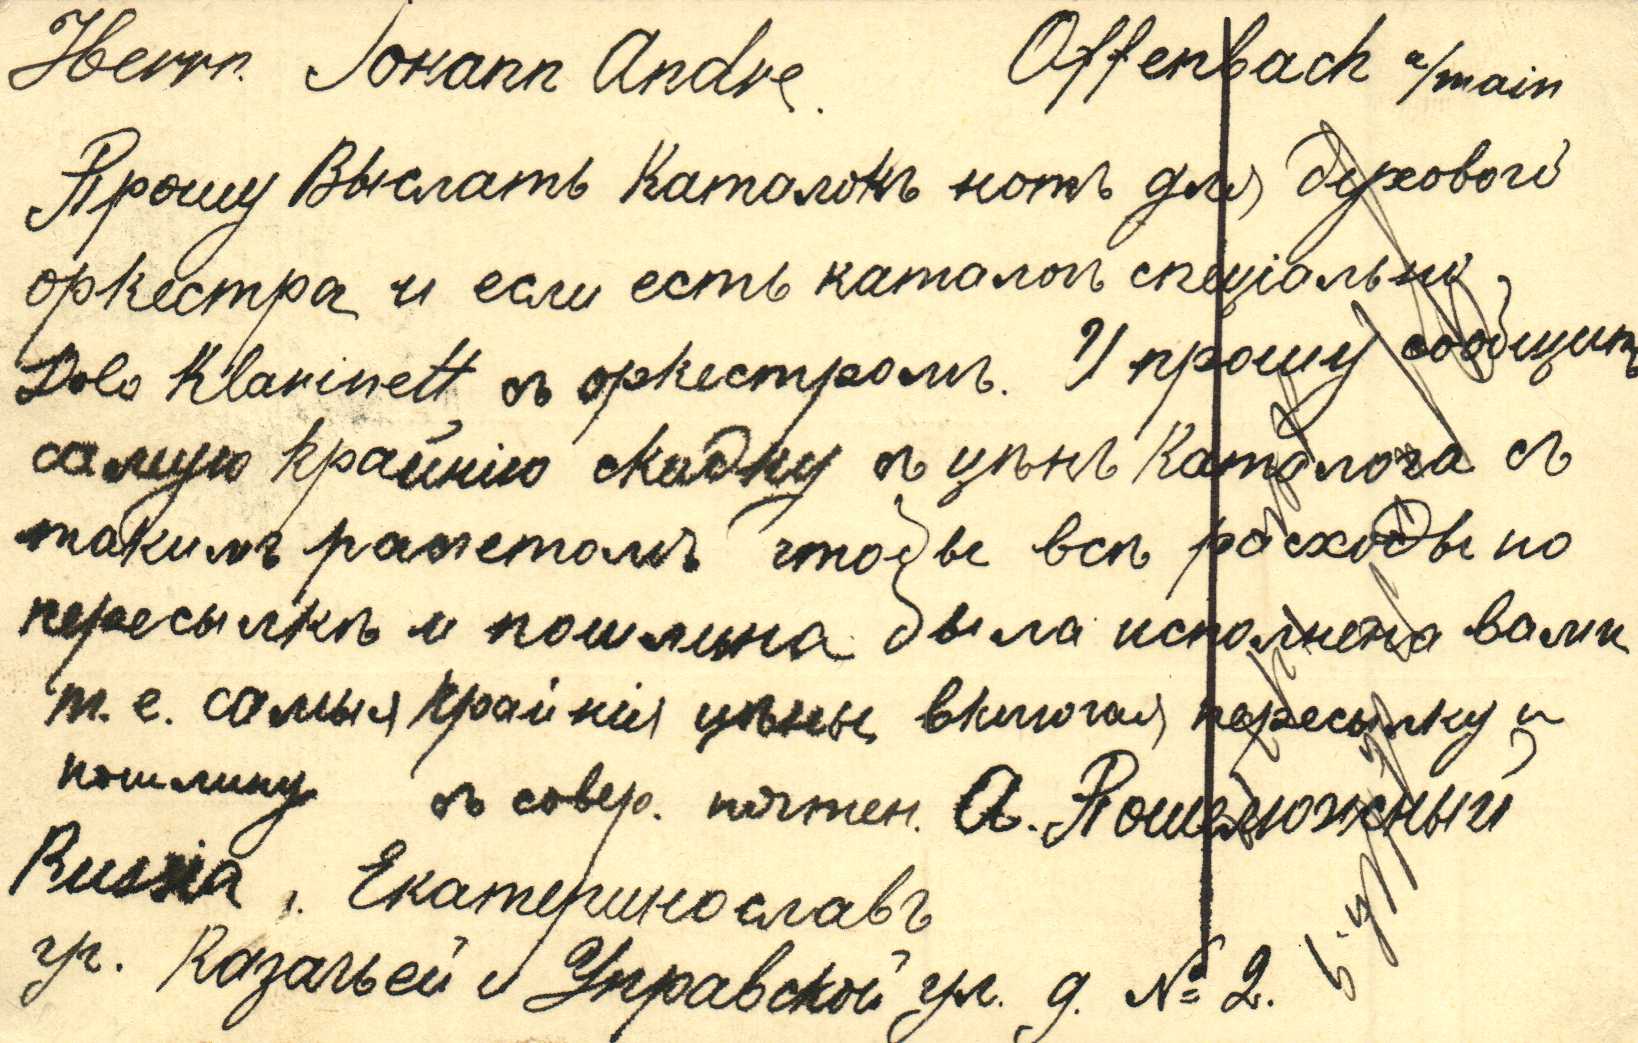 Herrn. Johann Andre. Offenbach a/main
Прошу Выслать Каталокъ нотъ для духового
оркестра и если есть каталогъ спеціально
Solo Klarinett съ оркестромъ. И прошу сообщить
самую крайнію скидку съ цѣнъ Каталога съ
такимъ расчетомъ чтобы всѣ расходы по
пересылкѣ и пошлина была исполнена вами
т. е. самыя крайнія цѣны, включая пересылку и
пошлину съ совер. почтен. А. Пошелюжный
Russia, Екатеринославъ
уг. Казачьей и Управской ул. д. № 2.